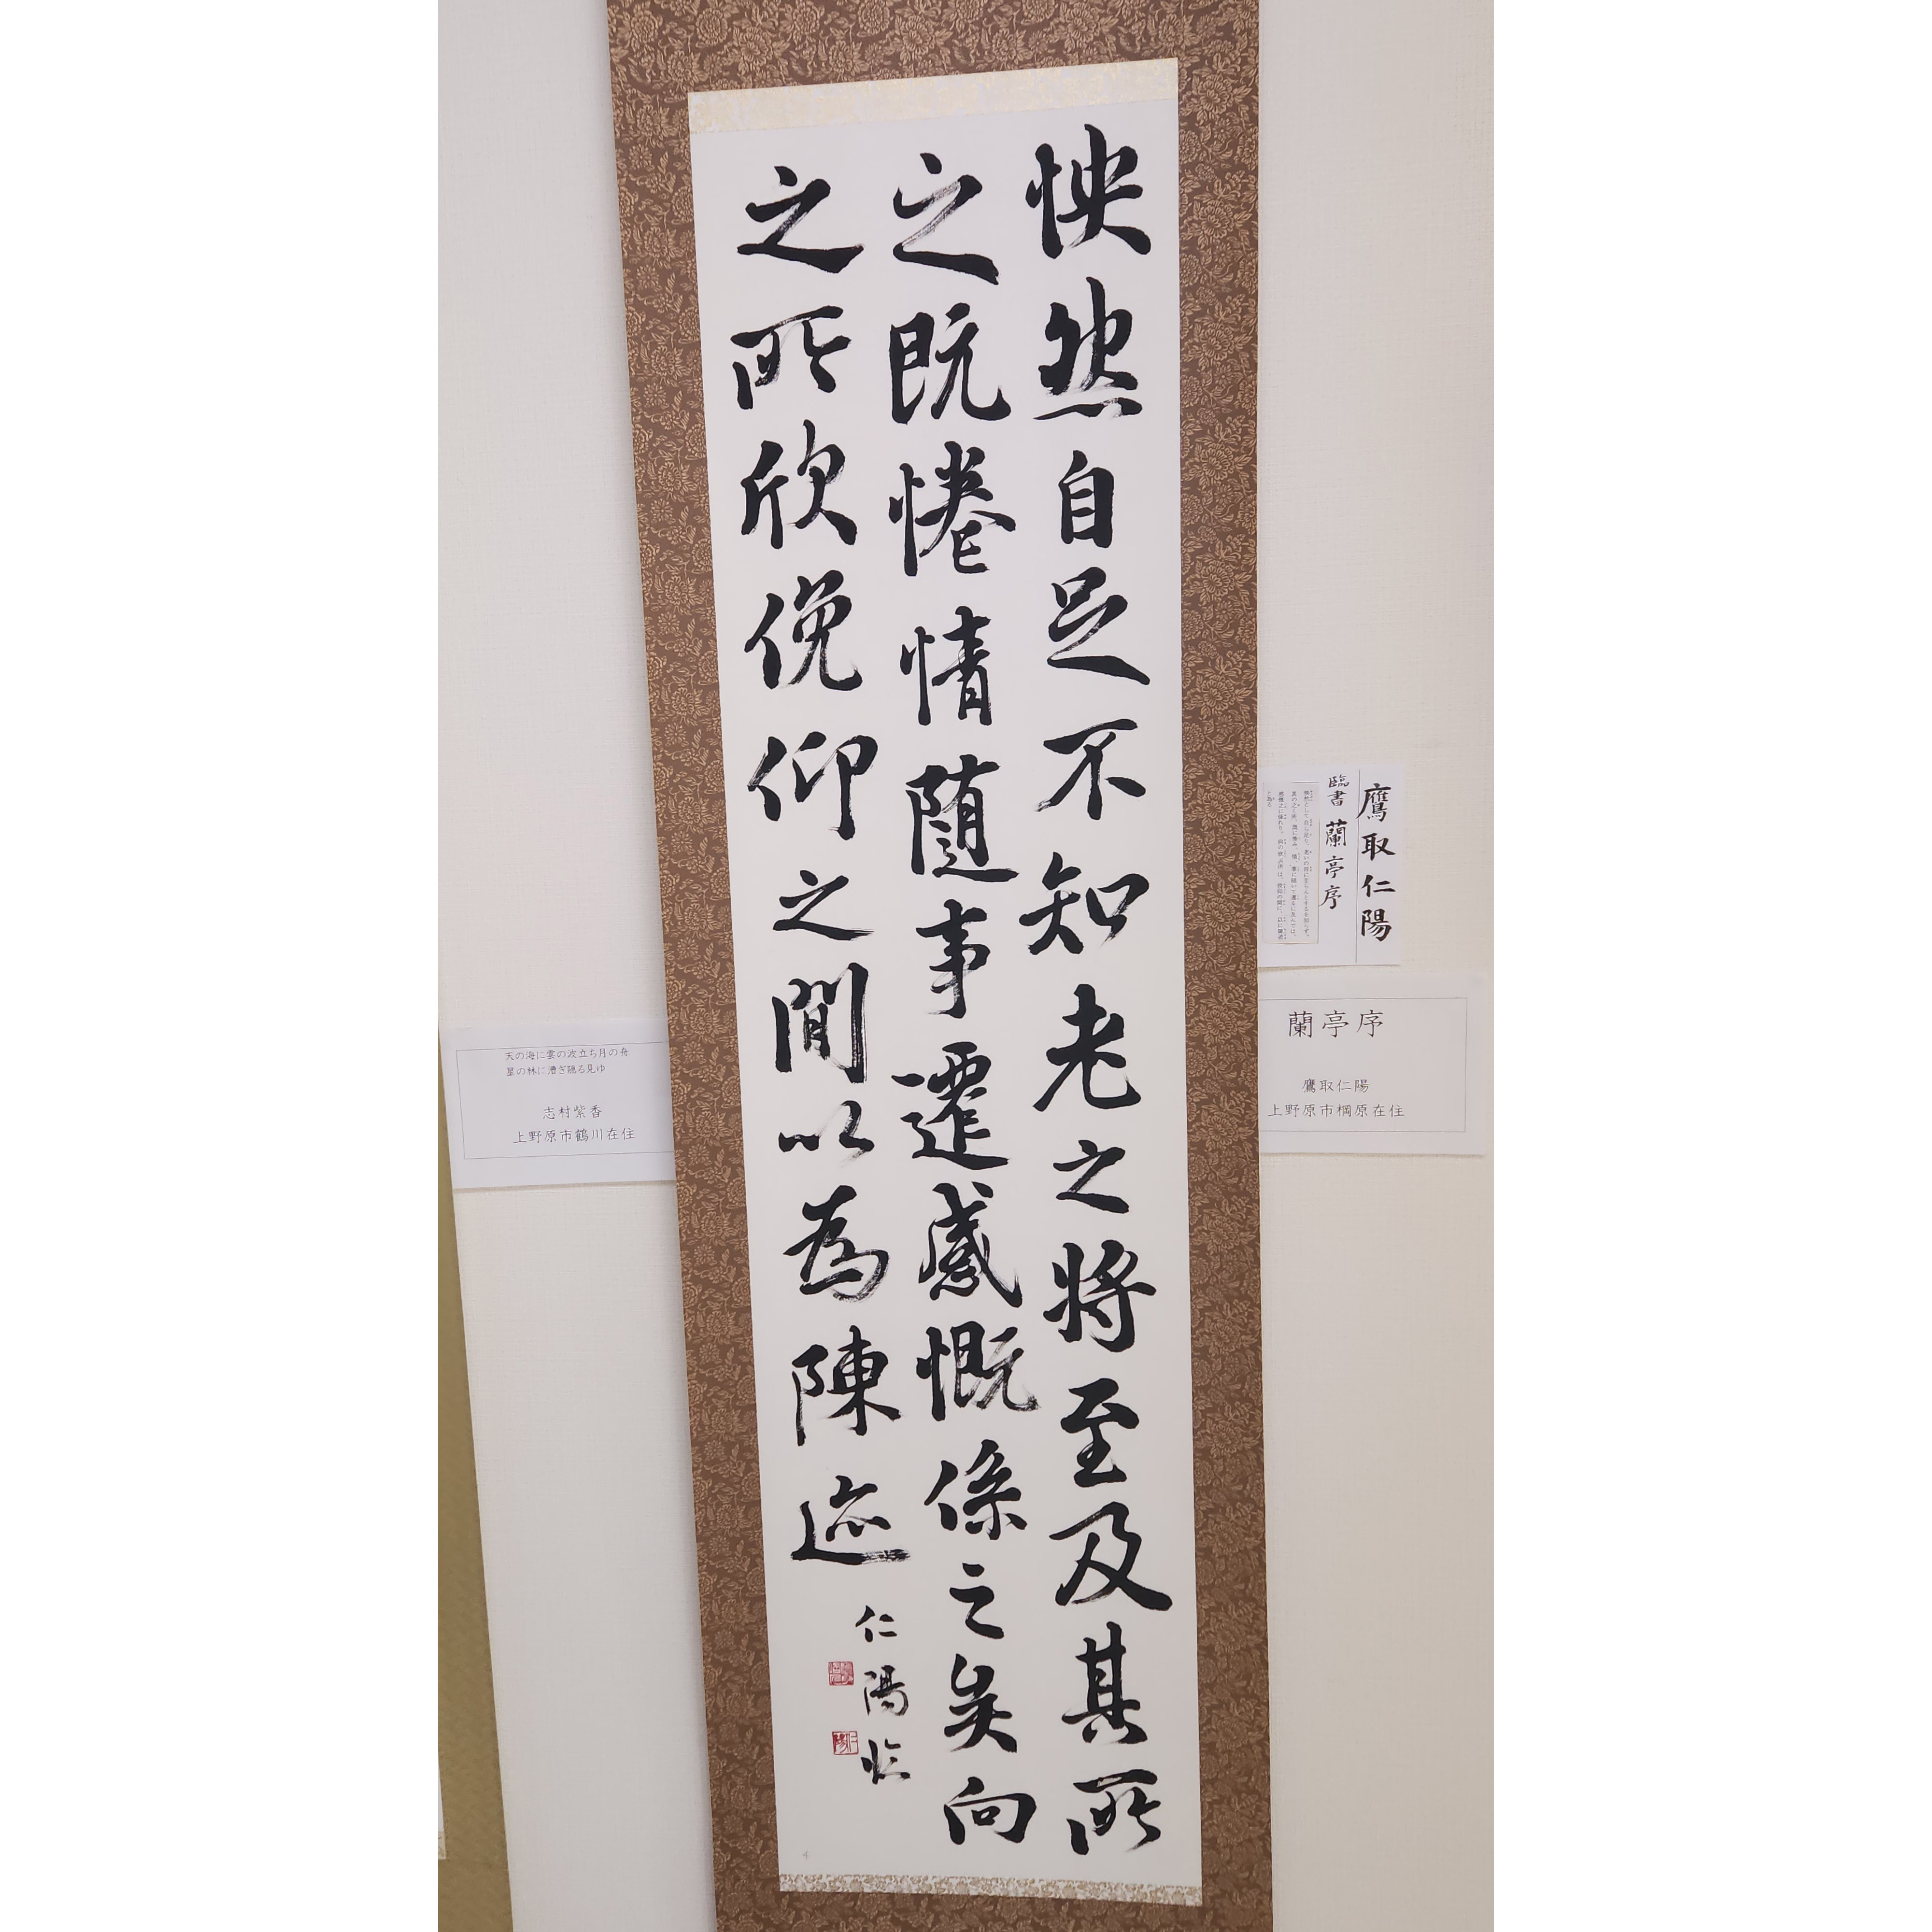 怏然自足不知老之将至及其所
之既惓情随事遷感慨係之矣向
之所欣俛仰之閒以為陳迹
仁陽臨
鷹取仁陽
臨書 蘭亭序
蘭亭序
鷹取仁陽
上野原市棡原在住
天の海に雲の波立ち月の舟
星の林に漕ぎ隠る見ゆ
志村紫香
上野原市鶴川在住